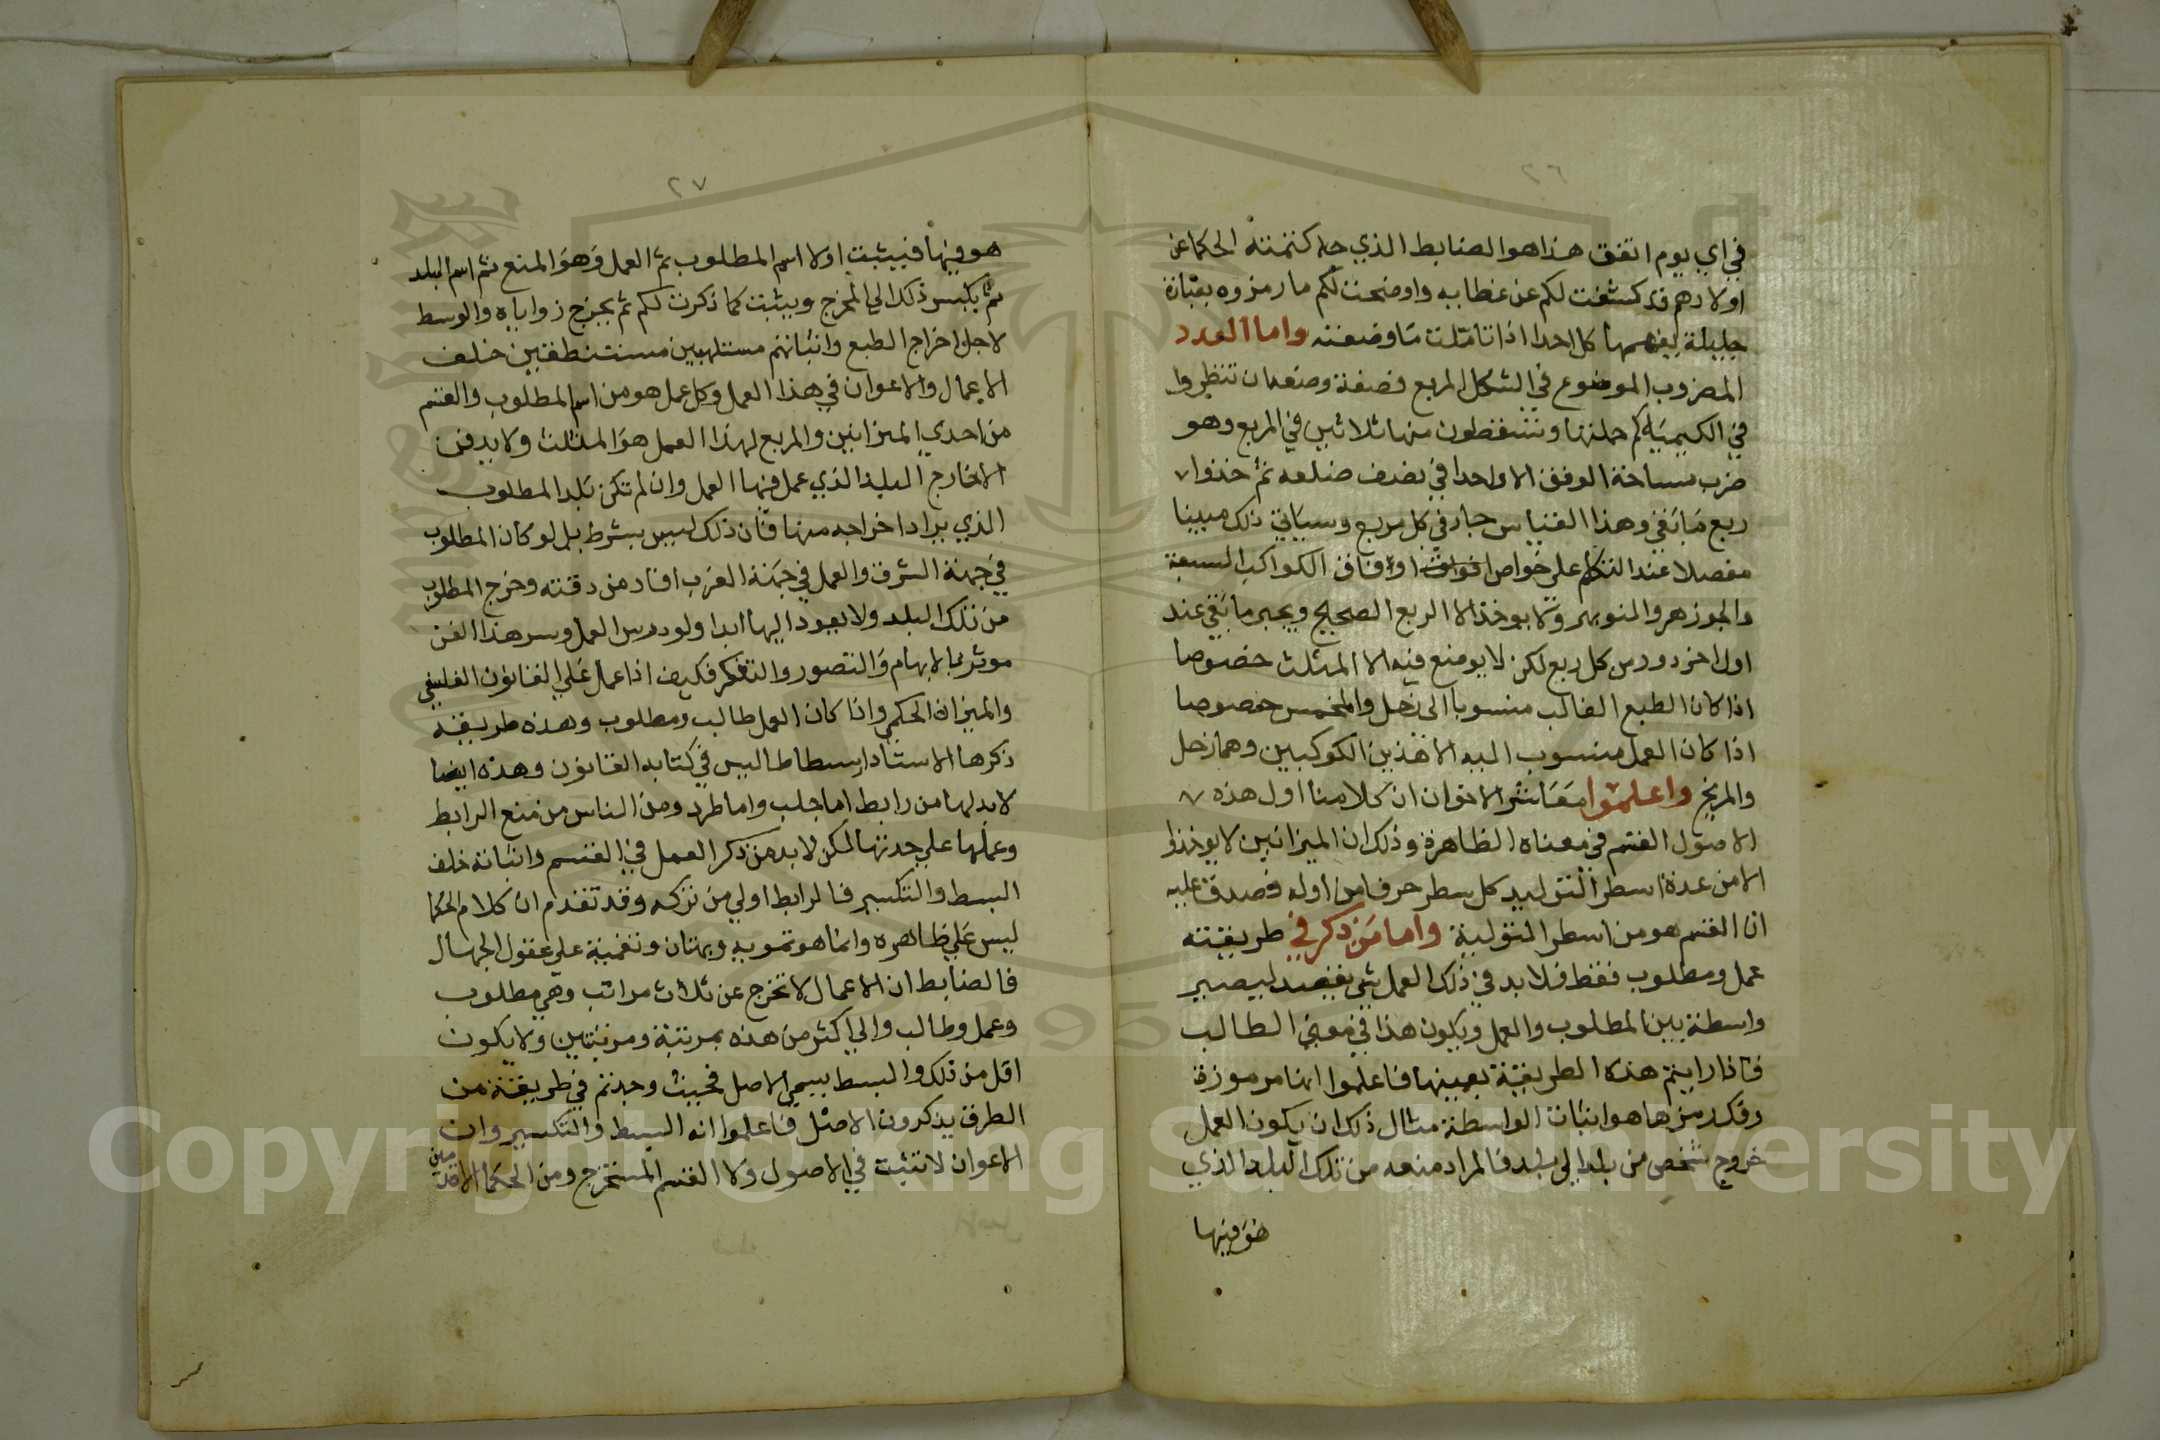 ٢٦
في اي يوم اتفق هذا هو الضابط الذي حله كتمته الحكما عن
اولادهم قد كشفت لكم عن غطايه واوضحت لكم ما رمزوه بعبارة
جليلة يفهمها كل احد اذا تاملت ما وضعته واما العدد
المضروب الموضوع في الشكل المربع فصفة وضعه ان تنظروا
في الكمية كم جملتها وتسقطون منها ثلاثين في المربع وهو
ضرب مساحة الوفق الا واحدا في نصف ضلعه ثم خذوا
ربع ما بقي وهذا القياس جار في كل مربع وسياتي ذلك مبينا
مفصلا عند التكلم على خواص اوفاق الكواكب السبعة
والجوزهر والنوبهر ولا يوخذ الا الربع الصحيح ويجبر ما بقي عند
اول اخر دور من كل ربع لكن لا يوضع فيه الا المثلث خصوصا
اذا كان الطبع الغالب منسوبا الى زحل والمخمس خصوصا
اذا كان العمل منسوب اليه الا هذين الكوكبين وهما زحل
والمريخ واعلموا معاشر الاخوان ان كلامنا اول هذه
الاصول القسم في معناه الظاهرة وذلك ان الميزانين لا يوخذوا
الا من عدة اسطر التوليد كل سطر حرفا من اوله فصدق عليه
ان القسم هو من اسطر المتولية واما من ذكر في طريقته
عمل ومطلوب فقط فلا بد في ذلك العمل شي يقصد ليصير
واسطة بين المطلوب والعمل ويكون هذا في معنى الطالب
فاذا رايتم هذه الطريقة بعينها فاعلموا انها مرموزة
وفك رمزها هو اثبات الواسطة مثال ذلك ان يكون العمل
خروج شخص من بلد الى بلد فالمراد منعه من تلك البلد الذي
هو فيها
٢٧
هو فيها فيثبت اولا اسم المطلوب ثم العمل وهو المنع ثم اسم البلد
ثم يكبس ذلك الى المخرج ويثبت كما ذكرت لكم ثم يخرج زواياه والوسط
لاجل اخراج الطبع واثباتهم مستلهبين مستنطقين خلف
الاعمال والاعوان في هذا العمل وكل عمل هو من اسم المطلوب والقسم
من احدي الميزانين والمربع لهذا العمل هو المثلث ولا يدفن
الا خارج البلد الذي عمل فيها العمل وان لم تكن بلد المطلوب
الذي يراد اخراجه منها فان ذلك ليس بشرط بل لو كان المطلوب
في جهة الشرق والعمل في جهة الغرب افاد من دقته وخرج المطلوب
من تلك البلد ولا يعود اليها ابدا ولو درس العمل وسر هذا الفن
موثر بالابهام والتصور والتفكر فكيف اذا عمل على القانون الفلسفي
والميزان الحكمي واذا كان العمل طالب ومطلوب وهذه طريقة
ذكرها الاستاد ارسطاطاليس في كتابه القانون وهذه ايضا
لا بد لها من رابط اما جلب واما طرد ومن الناس من منع الرابط
وعملها على جدتها لكن لا بد من ذكر العمل في القسم واثباته خلف
البسط والتكسير فالرابط اولي من تركه وقد تقدم ان كلام الحكما
ليس على ظاهره وانما هو تمويه وبهتان وتعمية على عقول الجهال
فالضابط ان الاعمال لا تخرج عن ثلاث مراتب وهي مطلوب
وعمل وطالب والى اكثر من هذه بمرتبة ومرتبتين ولا يكون
اقل من ذلك والبسط يسمى الاصل فحيث وجدتم في طريقة من
الطرق يذكرون الاصل فاعلموا انه البسط والتكسير وان
الاعوان لا تثبت في الاصول ولا القسم المستخرج ومن الحكما الاقدمين
Copyright © King Saud University